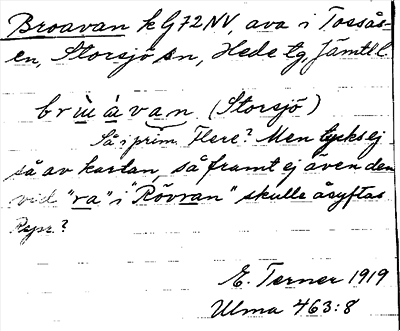 Broavan k G72NV, ava i Tossås-
en, Storsjö sn, Hede tg, Jämtl l
brùı̀ àvan (Storsjö)
Så i prim. Flere? Men tycks ej
så av kartan, så framt ej även den
vid "ra" i "Rövran" skulle åsyftas
Repr.?
E. Terner 1919
Ulma 463:8